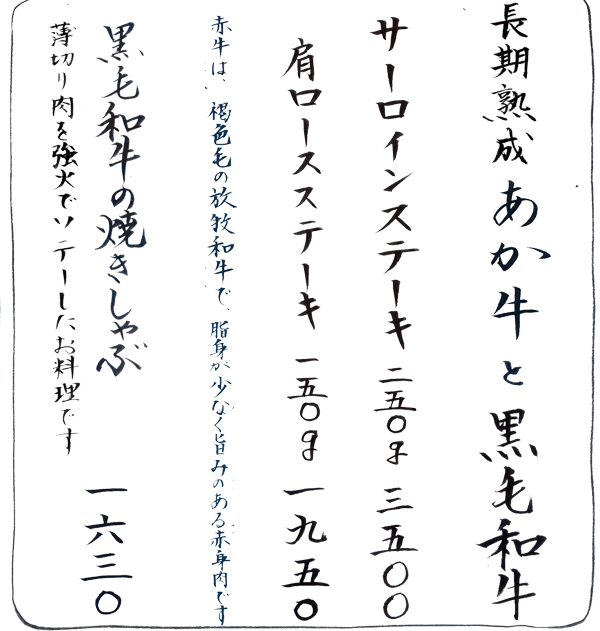 長期熟成 あか牛と黒毛和牛
サーロインステーキ 二五〇g 三五〇〇
肩ロースステーキ 一五〇g 一九五〇
赤牛は、褐色毛の放牧和牛で、脂身が少なく旨みのある赤身肉です
黒毛和牛の焼きしゃぶ 一六三〇
薄切り肉を強火でソテーしたお料理です